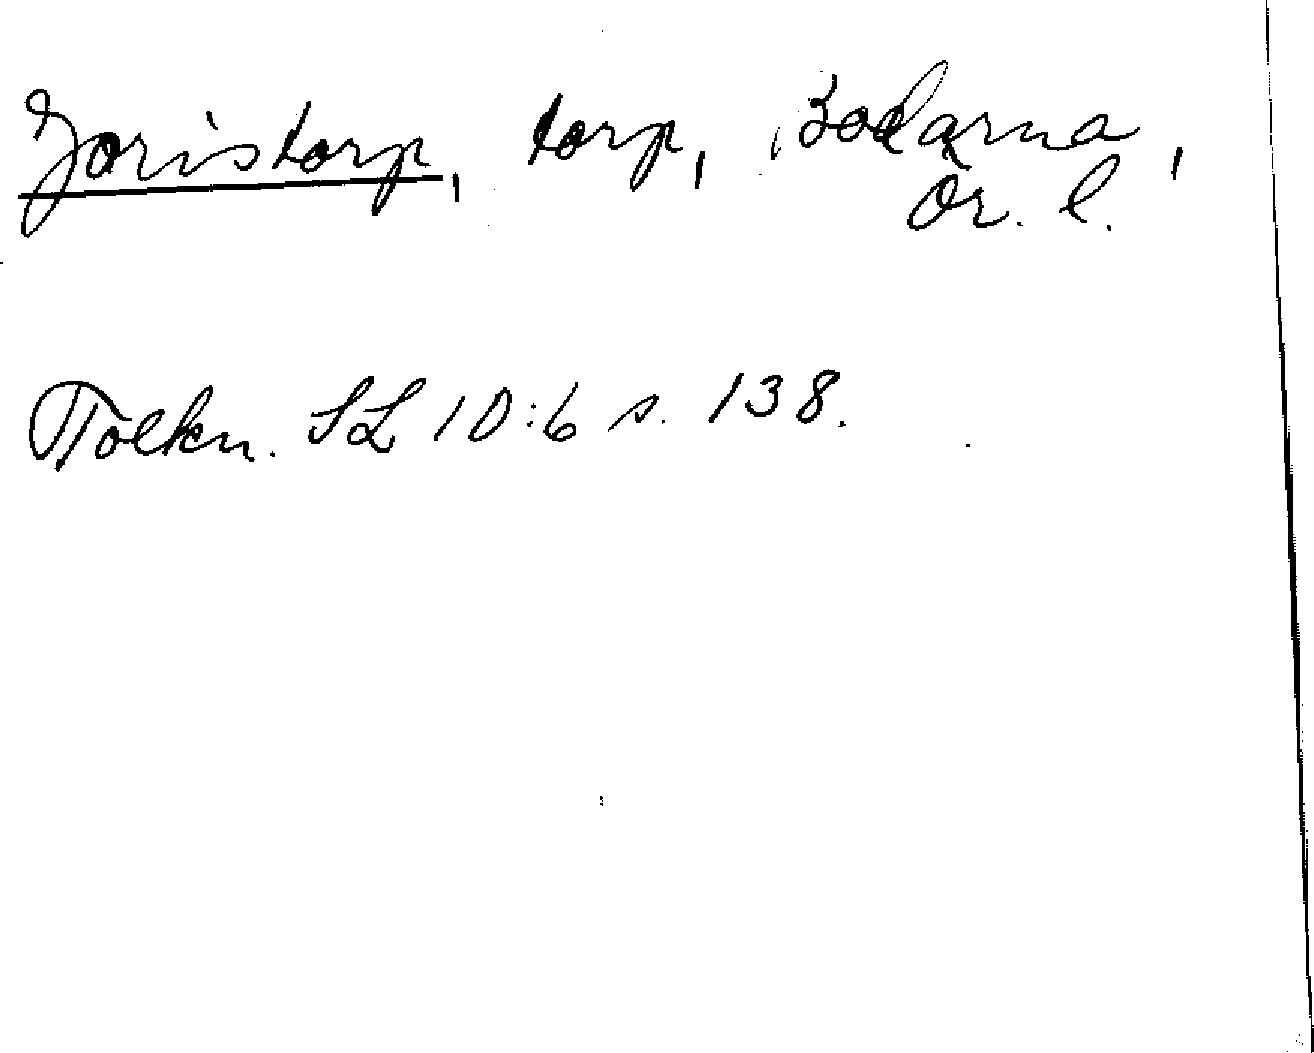 Joristorp, torp, Bodarna,
Ör. l.
Tolkn. SL 10:6 s. 138.